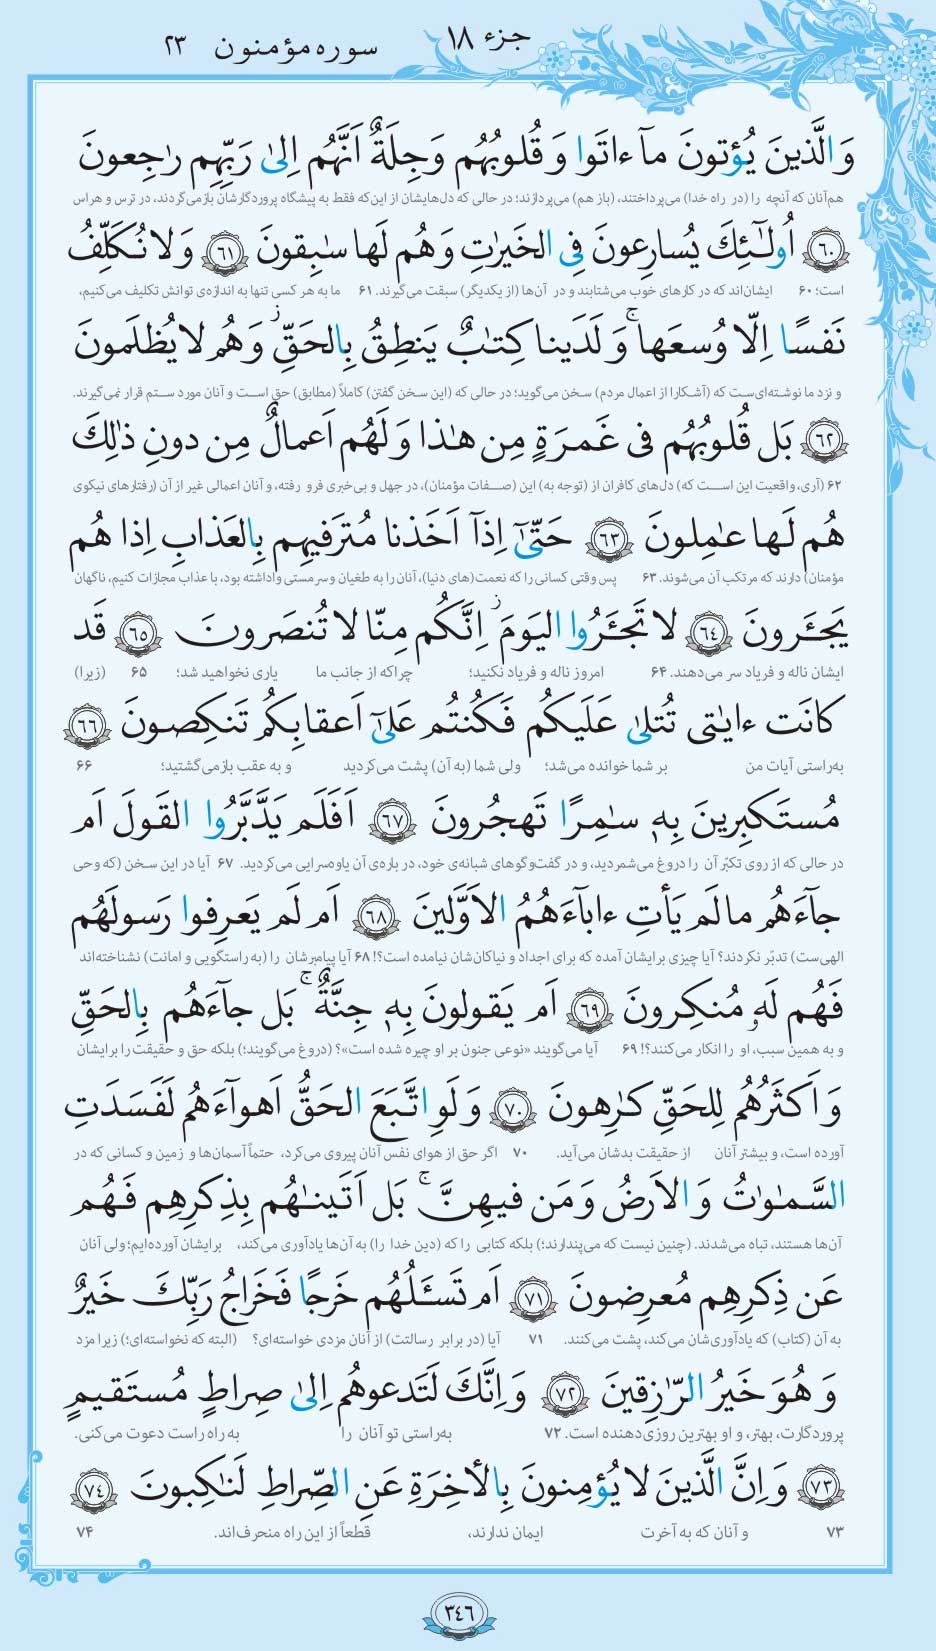 جزء ۱۸
سوره مؤمنون ۲۳
وَالَّذينَ يُؤتونَ مآ ءاتَوا وَ قُلوبُهُم وَجِلَةٌ اَنَّهُم اِلىٰ رَبِّهِم رٰجِعونَ
هم‌آنان که آنچه را (در راه خدا) می‌پرداختند، (باز هم) می‌پردازند؛ در حالی که دل‌هایشان از این‌که فقط به پیشگاه پروردگارشان بازمی‌گردند، در ترس و هراس
﴿۶۰﴾ اُولٰٓئِكَ يُسارِعونَ فِى الخَيرٰتِ وَ هُم لَها سٰبِقونَ ﴿۶۱﴾ وَ لا نُكَلِّفُ
است؛ ۶۰ ایشان‌اند که در کارهای خوب می‌شتابند و در آن‌ها (از یکدیگر) سبقت می‌گیرند. ۶۱ ما به هر کسی تنها به اندازه‌ی توانش تکلیف می‌کنیم،
نَفسًا اِلّا وُسعَها ۚ وَ لَدَينا كِتٰبٌ يَنطِقُ بِالحَقِّ ز وَ هُم لا يُظلَمونَ
و نزد ما نوشته‌ای‌ست که (آشکارا از اعمال مردم) سخن می‌گوید؛ در حالی که (این سخن گفتن) کاملاً (مطابق) حق است و آنان مورد ستم قرار نمی‌گیرند.
﴿۶۲﴾ بَل قُلوبُهُم فى غَمرَةٍ مِن هٰذا وَ لَهُم اَعمالٌ مِن دونِ ذٰلِكَ
۶۲ (آری، واقعیت این است که) دل‌های کافران از (توجه به) این (صفات مؤمنان)، در جهل و بی‌خبری فرو رفته، و آنان اعمالی غیر از آن (رفتارهای نیکوی
هُم لَها عٰمِلونَ ﴿۶۳﴾ حَتّىٰٓ اِذآ اَخَذنا مُترَفيهِم بِالعَذابِ اِذا هُم
مؤمنان) دارند که مرتکب آن می‌شوند. ۶۳ پس وقتی کسانی را که نعمت(های دنیا)، آنان را به طغیان و سرمستی واداشته بود، با عذاب مجازات کنیم، ناگهان
يَجـَٔرونَ ﴿۶۴﴾ لا تَجـَٔرُوا اليَومَ ز اِنَّكُم مِنّا لا تُنصَرونَ ﴿۶۵﴾ قَد
ایشان ناله و فریاد سر می‌دهند. ۶۴ امروز ناله و فریاد نکنید؛ چراکه از جانب ما یاری نخواهید شد؛ ۶۵ (زیرا)
كانَت ءايٰتى تُتلىٰ عَلَيكُم فَكُنتُم عَلىٰٓ اَعقابِكُم تَنكِصونَ ﴿۶۶﴾
به‌راستی آیات من بر شما خوانده می‌شد؛ ولی شما (به آن) پشت می‌کردید و به عقب بازمی‌گشتید؛ ۶۶
مُستَكبِرينَ بِهٖ سٰمِرًا تَهجُرونَ ﴿۶۷﴾ اَفَلَم يَدَّبَّرُوا القَولَ اَم
در حالی که از روی تکبّر آن را دروغ می‌شمردید، و در گفت‌وگوهای شبانه‌ی خود، درباره‌ی آن یاوه‌سرایی می‌کردید. ۶۷ آیا در این سخن (که وحی
جآءَهُم ما لَم يَأتِ ءابآءَهُمُ الاَوَّلينَ ﴿۶۸﴾ اَم لَم يَعرِفوا رَسولَهُم
الهی‌ست) تدبّر نکردند؟ آیا چیزی برایشان آمده که برای اجداد و نیاکان‌شان نیامده است؟! ۶۸ آیا پیامبرشان را (به راستگویی و امانت) نشناخته‌اند
فَهُم لَهٗ مُنكِرونَ ﴿۶۹﴾ اَم يَقولونَ بِهٖ جِنَّةٌ ۚ بَل جآءَهُم بِالحَقِّ
و به همین سبب، او را انکار می‌کنند؟! ۶۹ آیا می‌گویند «نوعی جنون بر او چیره شده است»؟ (دروغ می‌گویند؛) بلکه حق و حقیقت را برایشان
وَ اَكثَرُهُم لِلحَقِّ كٰرِهونَ ﴿۷۰﴾ وَ لَوِ اتَّبَعَ الحَقُّ اَهوآءَهُم لَفَسَدَتِ
آورده است، و بیشتر آنان از حقیقت بدشان می‌آید. ۷۰ اگر حق از هوای نفس آنان پیروی می‌کرد، حتماً آسمان‌ها و زمین و کسانی که در
السَّمٰوٰتُ وَ الاَرضُ وَ مَن فيهِنَّ ۚ بَل اَتَينٰهُم بِذِكرِهِم فَهُم
آن‌ها هستند، تباه می‌شدند. (چنین نیست که می‌پندارند؛) بلکه کتابی را که (دین خدا را) به آن‌ها یادآوری می‌کند، برایشان آورده‌ایم؛ ولی آنان
عَن ذِكرِهِم مُعرِضونَ ﴿۷۱﴾ اَم تَسـَٔلُهُم خَرجًا فَخَراجُ رَبِّكَ خَيرٌ
به آن (کتاب) که یادآوری‌شان می‌کند، پشت می‌کنند. ۷۱ آیا (در برابر رسالتت) از آنان مزدی خواسته‌ای؟ (البته که نخواسته‌ای؛) زیرا مزد
وَ هُوَ خَيرُ الرّٰزِقينَ ﴿۷۲﴾ وَ اِنَّكَ لَتَدعوهُم اِلىٰ صِراطٍ مُستَقيمٍ
پروردگارت، بهتر، و او بهترین روزی‌دهنده است. ۷۲ به‌راستی تو آنان را به راه راست دعوت می‌کنی.
﴿۷۳﴾ وَ اِنَّ الَّذينَ لا يُؤمِنونَ بِالأخِرَةِ عَنِ الصِّراطِ لَنٰكِبونَ ﴿۷۴﴾
۷۳ و آنان که به آخرت ایمان ندارند، قطعاً از این راه منحرف‌اند. ۷۴
۳۴۶